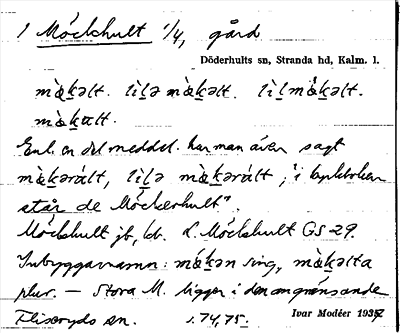 1 Möckhult 1/4, gård
Döderhults sn, Stranda hd, Kalm. l.
mö̀kəlt. lìlə mö̀kəlt. lìlmö̀kəlt.
mö̀kɐlt.
Enl. en del meddel. har man även sagt
mö̀kərált, lìlə mö̀kərált; "i kyrkboken
står de Möckerhult".
Möckhult jb, kb. L. Möckhult GS 29.
Inbyggarnamn: mö́kən sing., mö̀kəlta
plur. — Stora M. ligger i den angränsande
Fliseryds sn. s. 74, 75.
Ivar Modéer 1935